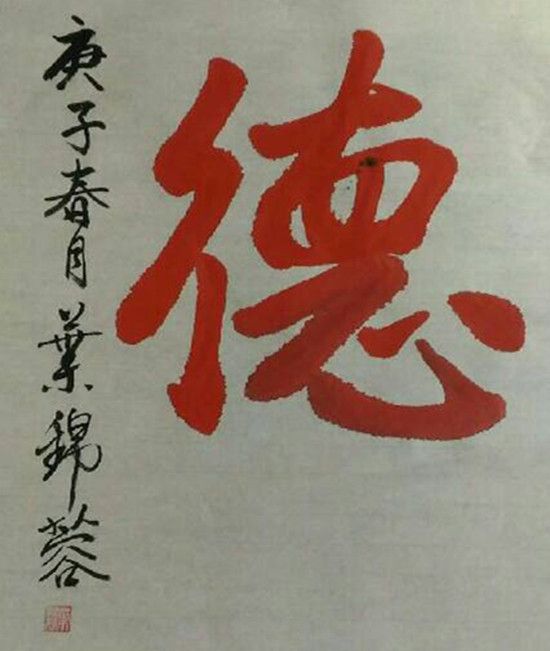 德
庚子春月葉錦蓉